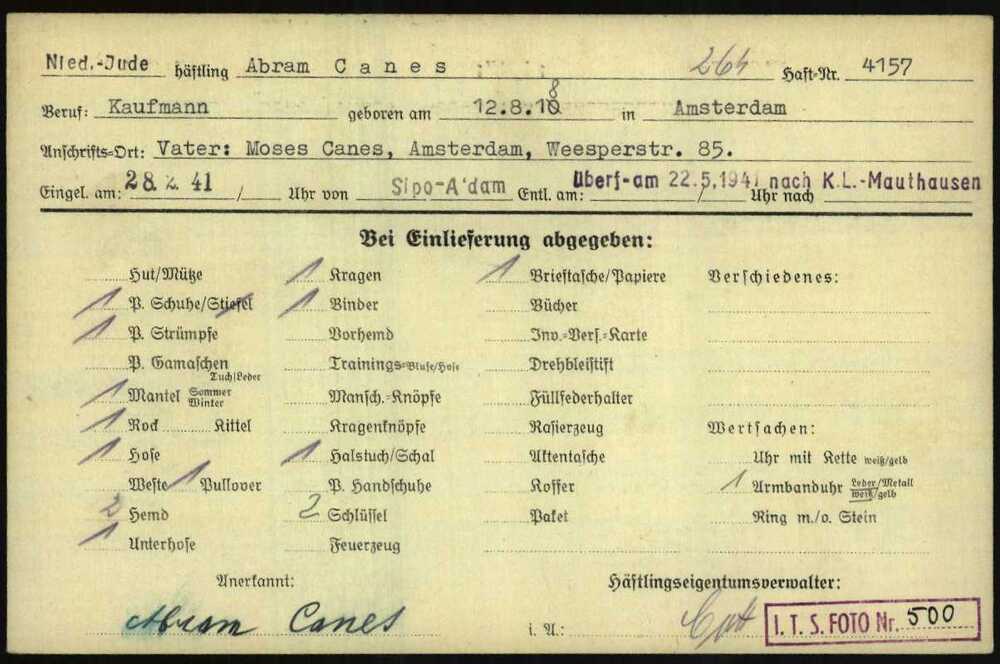 Nied.-Jude Häftling Abram Canes 264 Haft-Nr. 4157
Beruf: Kaufmann geboren am 12.8.18 in Amsterdam
Anschrifts-Ort: Vater: Moses Canes, Amsterdam, Weesperstr. 85.
Eingel. am: 28.2.41 / Uhr von Sipo-A'dam Entl. am: Überf-am 22.5.1941 nach K.L.-Mauthausen / Uhr nach
Bei Einlieferung abgegeben:
Hut/Mütze 1 Kragen 1 Brieftasche/Papiere Verschiedenes:
1 P. Schuhe/Stiefel 1 Binder Bücher
1 P. Strümpfe Vorhemd Inv.-Vers.-Karte
P. Gamaschen Tuch/Leder Trainings-Bluse/Hose Drehbleistift
1 Mantel Sommer Winter Mansch.-Knöpfe Füllfederhalter
1 Rock Kittel Kragenknöpfe Rasierzeug Wertsachen:
1 Hose 1 Halstuch/Schal Aktentasche Uhr mit Kette weiß/gelb
Weste 1 Pullover P. Handschuhe Koffer 1 Armbanduhr Leder/Metall weiß/gelb
2 Hemd 2 Schlüssel Paket Ring m./o. Stein
1 Unterhose Feuerzeug
Anerkannt: Häftlingseigentumsverwalter:
Abram Canes i. A.: I.T.S. FOTO Nr. 500